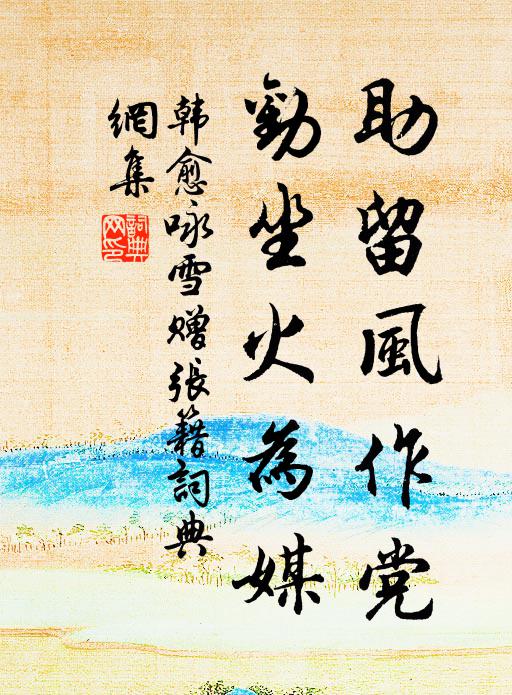 助留風作党
勸坐火為媒
韩愈咏雪赠張籍詞典
網集
詞典
网印